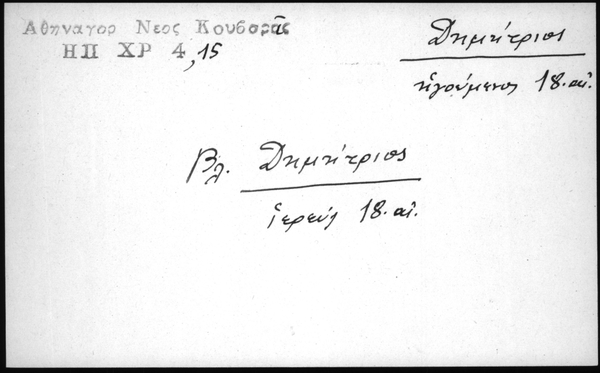 Αθηναγορ Νεος Κουβαρᾶς
ΗΠ ΧΡ 4, 15
Δημήτριος
ἡγούμενος 18. αἰ.
Βλ. Δημήτριος
ἱερεύς 18. αἰ.